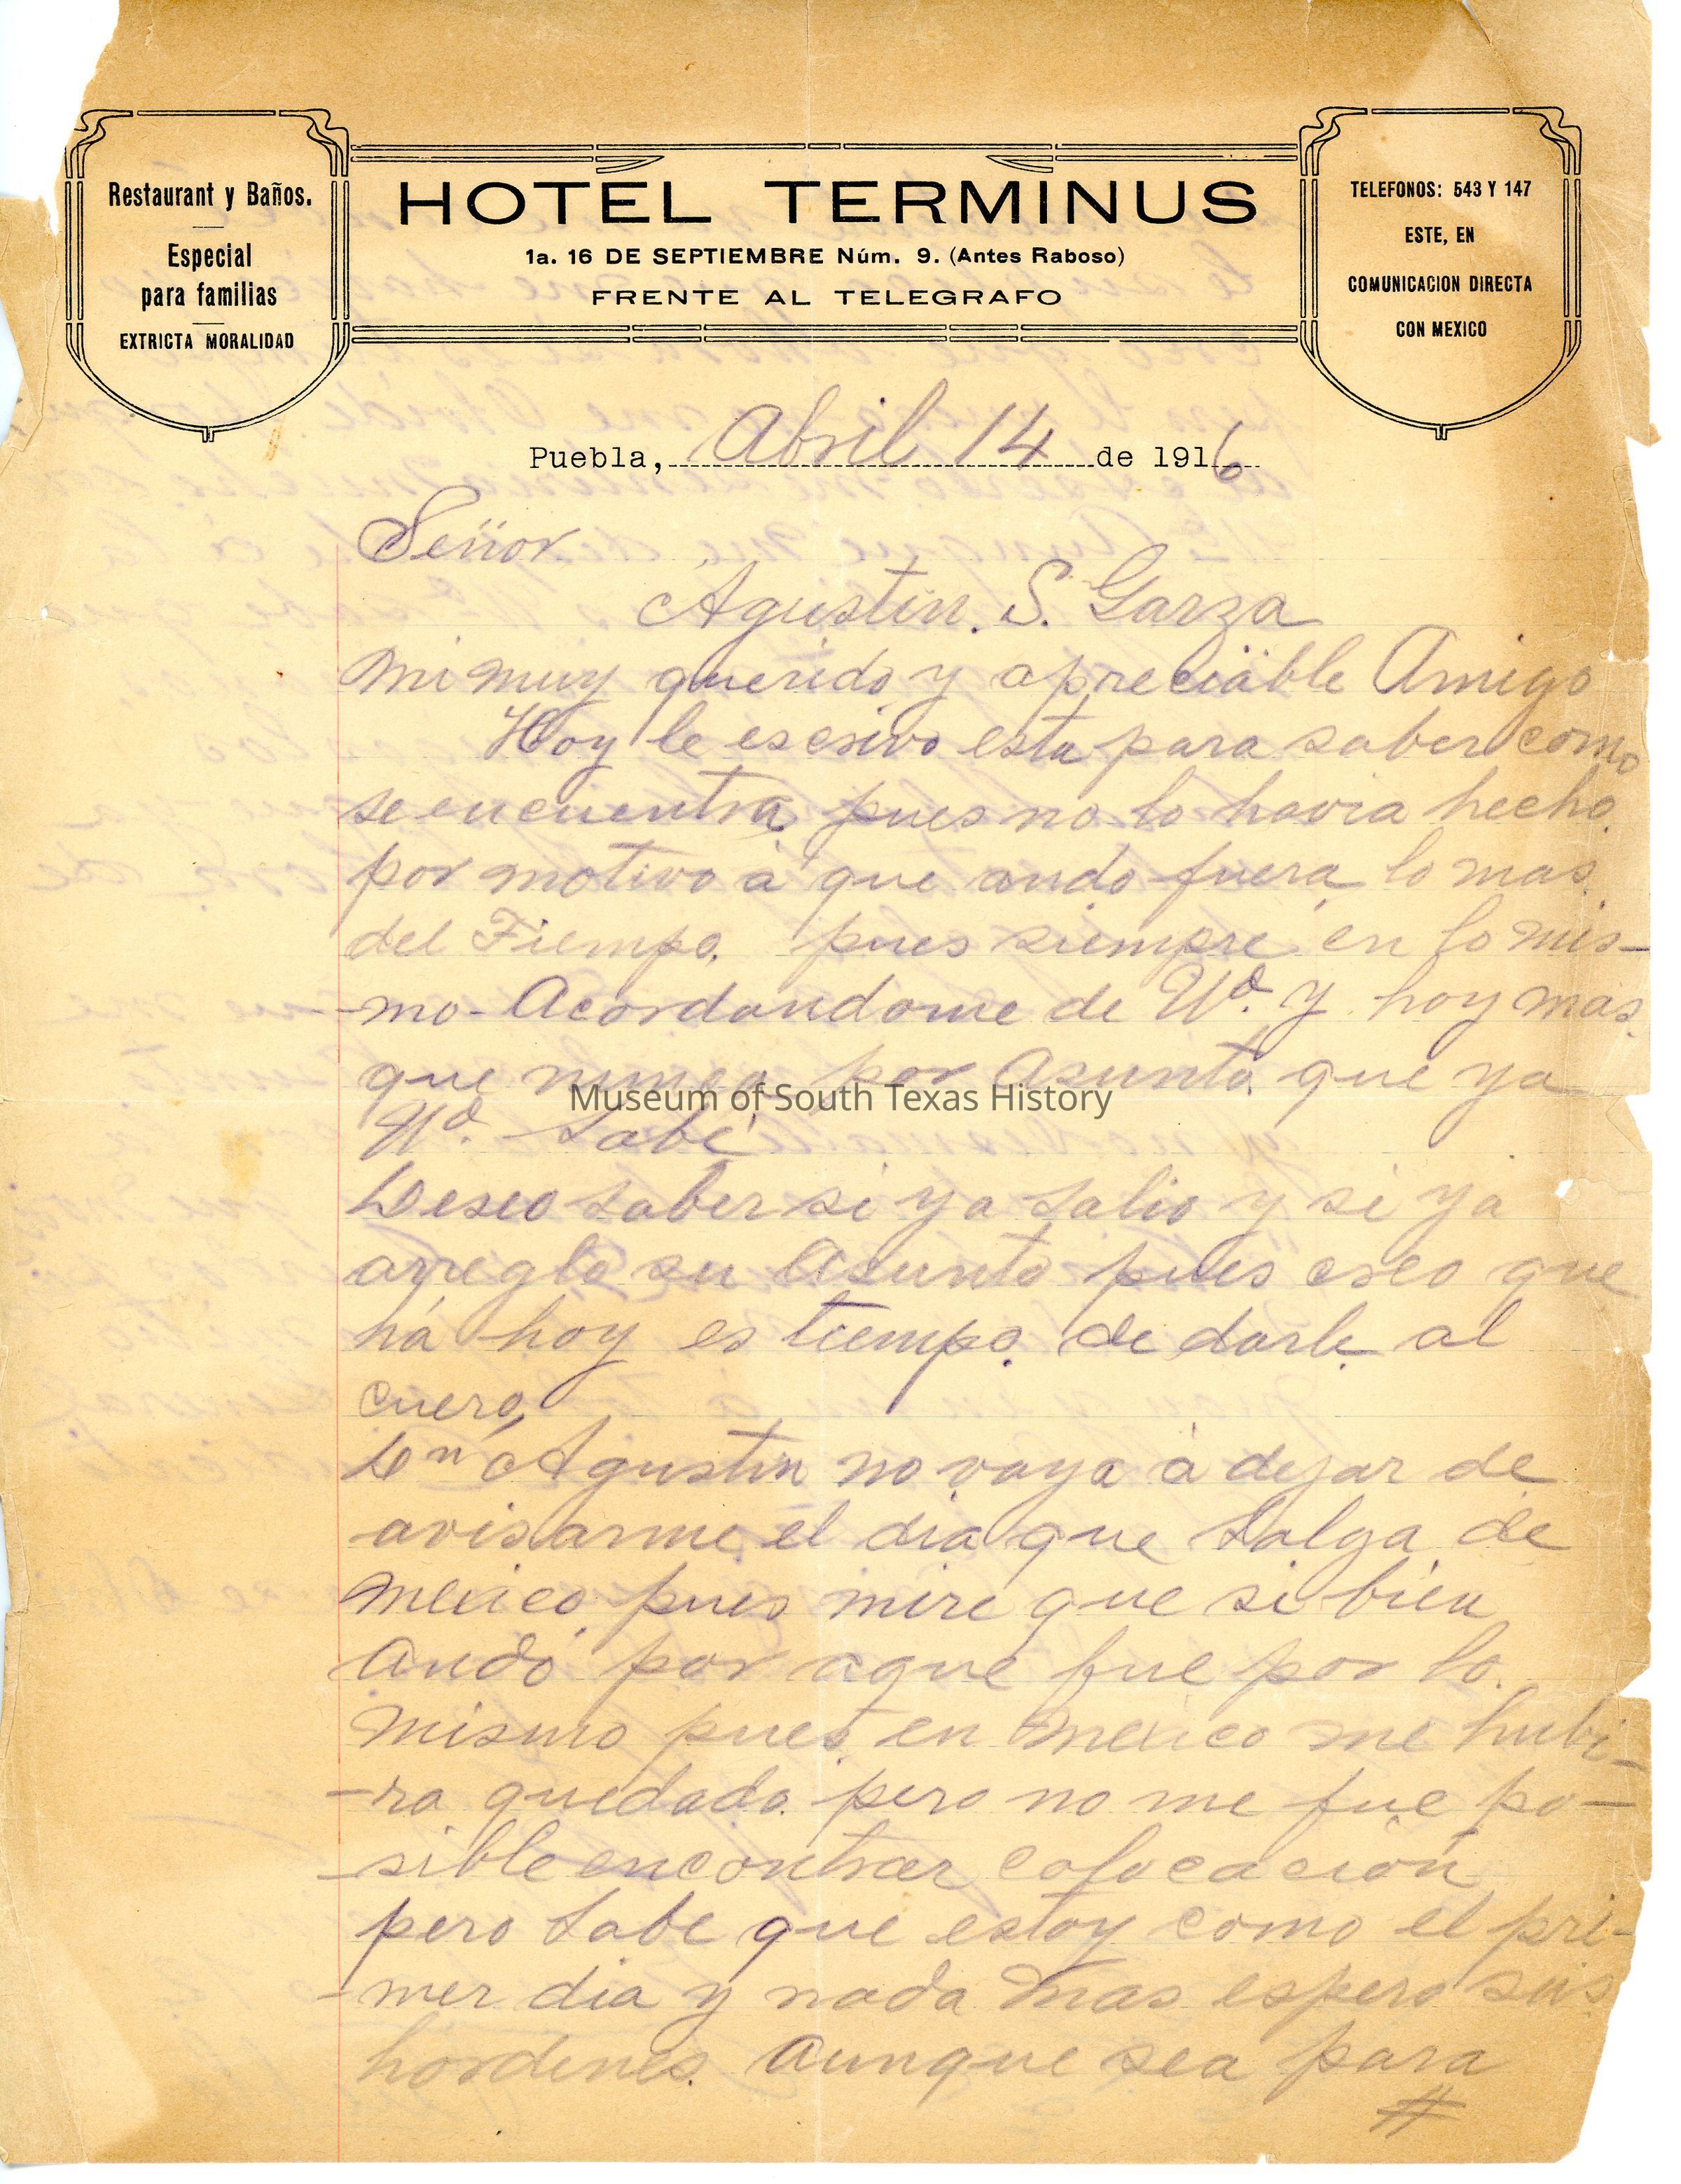 Restaurant y Baños.
Especial
para familias
EXTRICTA MORALIDAD
HOTEL TERMINUS
1a. 16 DE SEPTIEMBRE Núm. 9. (Antes Raboso)
FRENTE AL TELEGRAFO
TELEFONOS: 543 Y 147
ESTE, EN
COMUNICACION DIRECTA
CON MEXICO
Puebla, Abril 14 de 1916
Señor
Agustin. S. Garza
Mi muy querido y apreciable Amigo
Hoy le escrivo esta para saber como
se encuentra, pues no lo havia hecho
por motivo à que ando fuera lo mas
del Tiempo. pues siempre en lo mis-
-mo- Acordandome de Ud. y hoy mas
que nunca por Asunto. que ya
Ud. Sabe
Deseo saber si ya Salio y si ya
arreglo su Asunto pues creo que
há hoy es tiempo. de darle al
cuero,
Dn Agustin no vaya à dejar de
avisarme el dia que Salga de
Mexico pues mire que si bien
Ando por aque fue por lo
Mismo pues en Mexico me hubi-
-ra quedado. pero no me fue po-
-sible encontrar colocacion
pero Sabe que estoy como el pri-
-mer dia y nada Mas espero sus
hordenes. Aunque sea para
#
Museum of South Texas History